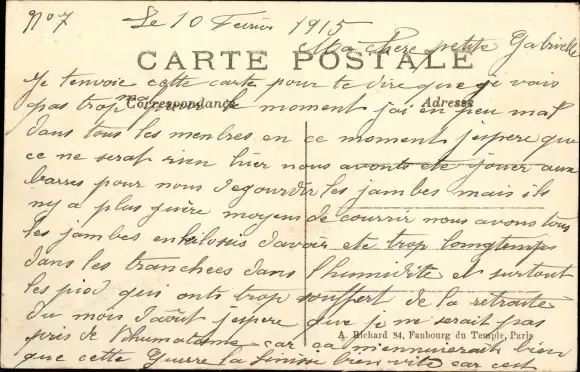 N° 7 Le 10 Fevrier 1915
Ma chère petite Gabrielle
CARTE POSTALE
Je t'envoie cette carte pour te dire que je vais
pas trop mal pour le moment j'ai en peu mal
Correspondance Adresse
dans tous les menbres en ce moment j'espere que
ce ne serat rien hier nous avonts ete jouer aux
barres pour nous degourdir les jambes mais ils
ny a plus guère moyen de courrir nous avons tous
les jambes davoir ete trop longtemps
dans les tranchees dans l'humidite et surtout
les pied qui onts trop souffert de la retraite
du mois d'août j'espere que je ne serait pas
A. Richard 84, Faubourg du Temple, Paris
pris de Rhumatisme car ca m'ennuierait bien
que cette Guerre la finisse bien vite car cest